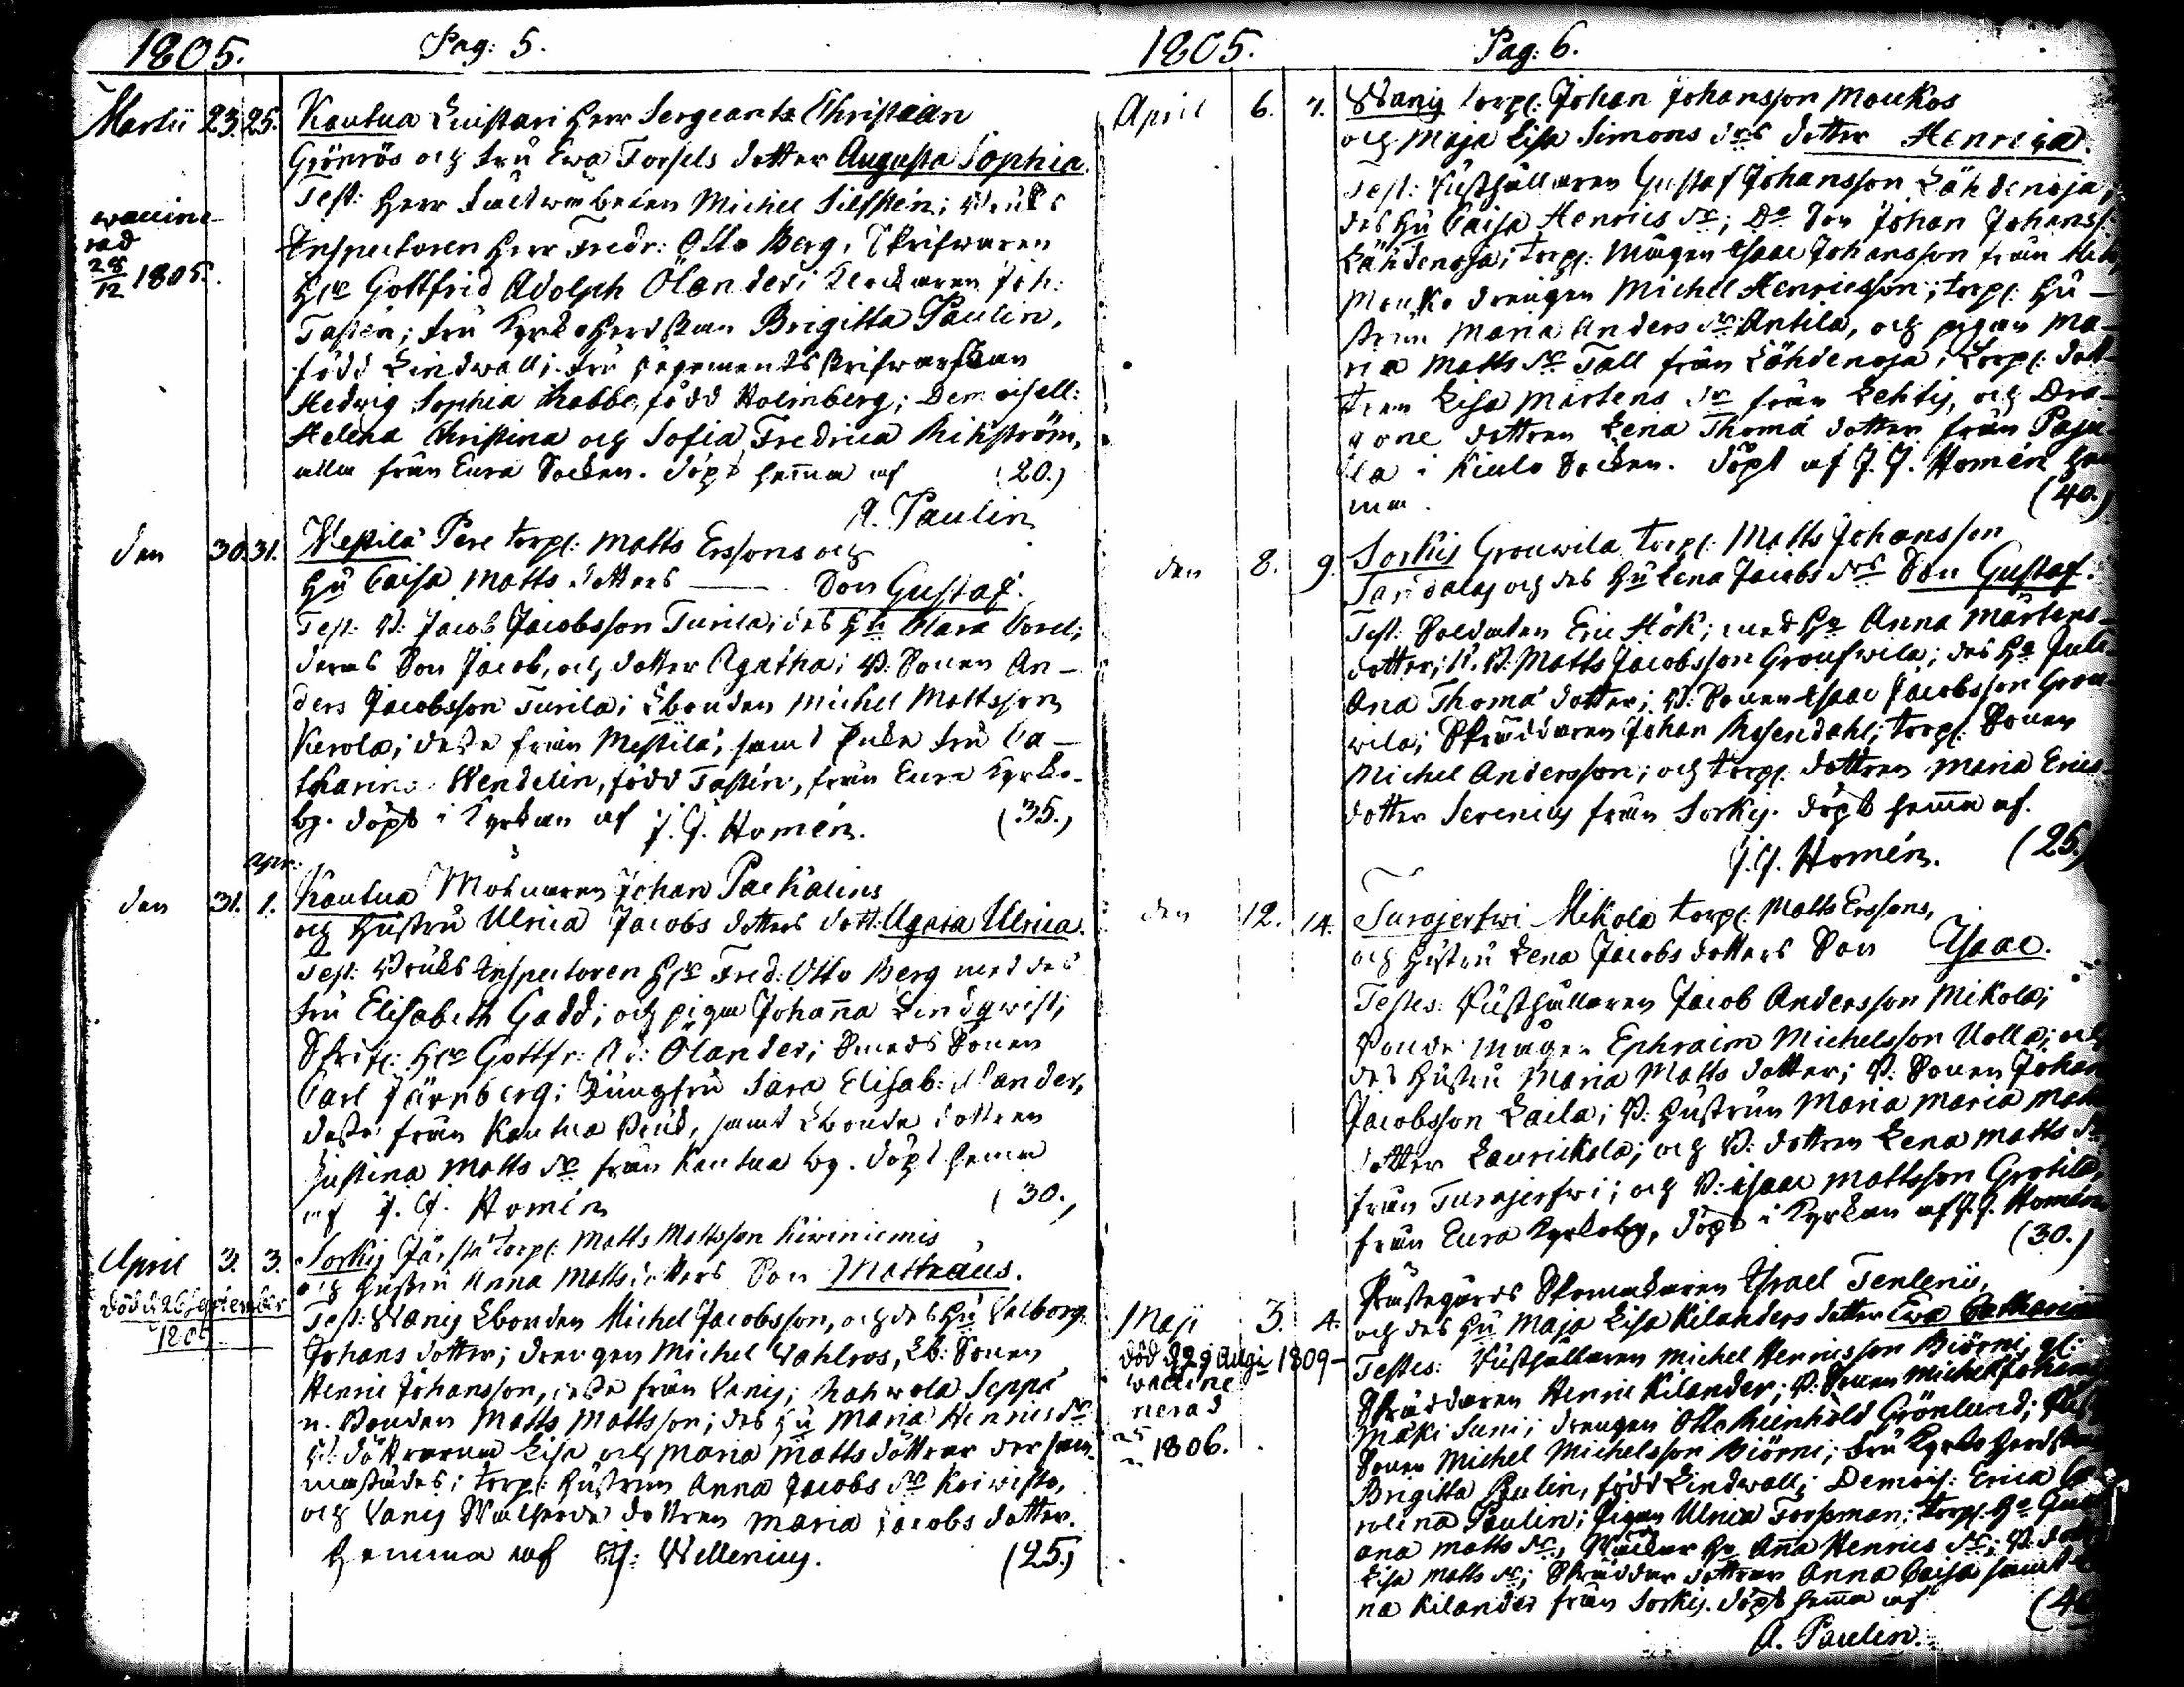 1805. Pag: 5.
Martii 23. 25. Kautua Luistari Herr Sergeants Christian
Grönros och fru Ewa Forsels dotter Augusta Sophia.
Test: Herr Michel Silfstén; Bruks
waccine-
rad
25/12 1805.
Inspectoren Herr Fredr: Otto Berg, Skrifwaren
Hr Gottfrid Adolph Ölander; Klockaren Joh:
Tastén; fru Kyrkoherdskan Brigitta Paulin,
född Lindwall; fru regementsskrifwarskan
Hedvig Sophia Rabbe, född Holmberg; Demoisell:
Helena Christina och Sofia Fredrica Rikström,
alla från Eura Socken. döpt hemma af (20.)
A. Paulin
den 30. 31. Mestilä Pere torp: Matts Erssons och
Hu Caisa Matts dotters Son Gustaf.
Test: B: Jacob Jacobsson Turila; des Hu Clara
deras Son Jacob, och dotter Agatha; B: Sonen An-
ders Jacobsson Turila; Lbonden Michel Mattsson
Kerola; desse från Mestilä, samt Enke fru Ca-
tharina Wendelin, född Tastén, från Eura Kyrko-
by. döpt i Kyrkan af J. G. Homén. (35.)
apr:
den 31. 1. Kautua Johan Packalins
och Hustru Ulrica Jacobs dotters dott: Agata Ulrica.
Test: Bruks Inspectoren Hr Fred: Otto Berg med des
fru Elisabeth Gadd; och pigan Johanna Lindqwist;
Skrif: Hr Gottfr: Ad: Ölander; Smeds Sonen
Carl Järnberg; Jungfru Sara Elisab: Ölander,
desse från Kautua Bruk, samt Lbonde dottren
Justina Matts dr från Kautua by. döpt hemma
af J. G. Homén (30.)
April 3. 3. Sorkis Järstä torp: Matts Mattsson Kiwiniemis
och Hustru Anna Matts dotters Son Matthæus.
död d. 26 September
Test: Wanis Lbonden Michel Jacobsson, och des Hu Valborg
Johans dotter; drengen Michel Wahlros, Lb: Sonen
Henric Johansson, desse från Vanis; Kahwola Seppä
n. Bonden Matts Mattsson; des Hu Maria Henrics dr
B: döttrarna Lisa och Maria Matts döttrar der sam-
mastädes; torp: Hustrun Anna Jacobs dr Koiwisto,
och Vanis dottren Maria Jacobs dotter.
hemma af G: Wellenius. (25.)
1805. Pag: 6.
April 6. 7. Wanis torp: Johan Johansson Moukos
och Maja Lisa Simons drs dotter Henrica.
Test: Rusthållaren Gustaf Johansson Lähdenoja,
des Hu Caisa Henrics dr; Do Son Johan Johanss:
Lähdenoja; torp: Mågen Isaac Johansson från
Mouko drengen Michel Henricsson; torp: Hu-
strun Maria Anders dr Antila, och pigan Ma-
ria Matts dr Tall från Lähdenoja; torp: dot-
tren Lisa Mårtens dr från Lehtis, och Dra-
gone dottren Lena Thomä dotter från Paju-
la i Kiulo Socken. döpt af J. G. Homén hem
ma. (40.)
den 8. 9. Sorkis Grouwila torp: Matts Johansson
och des Hu Lena Jacobs drs Son Gustaf.
Test: Soldaten Eric Hök; med Ho Anna Mårtens
dotter; N. B: Matts Jacobsson Groufwila; des Ho Juli-
ana Thomä dotter; B: Sonen Isaac Jacobsson Grou-
wila; Skräddaren Johan Rosendahl; torp: Sonen
Michel Andersson; och torp: dottren Maria Erics
dotter Serenius från Sorkis. döpt hemma af.
J. G. Homén. (25.)
den 12. 14. Turajerfwi Mikola torp: Matts Erssons,
och Hustru Lena Jacobs dotters Son Isaac.
Testes: Rusthållaren Jacob Andersson Mikola;
Bonde mågen Ephraim Michelsson Uolla; och
des Hustru Maria Matts dotter; B: Sonen Johan
Jacobsson Laila; B: Hustrun Maria Maria
dotter Laurickala; och B: dottren Lena Matts
från Turajerfwi; och B: Isaac Mattsson Grotila,
från Eura Kyrkoby, döpt i Kyrkan af J. G. Homén
(30.)
Prästegårds Skomakaren Israel Tenlenii,
Maji 3. 4. och des Hu Maja Lisa Kilanders dotter Ewa Catharina
död d 29 Augi 1809
waccine
nerad
1806.
Testes: Rusthållaren Michel Henricsson Biörni, gl:
Skräddaren Henric Kilander; B: Sonen Michel
Mäki Suni; drengen Otto Reinhold Grönlund;
Sonen Michel Michelsson Biörni; fru Kyrkoherdskan
Brigitta Paulin, född Lindwall; Demois: Erica
rolina Paulin; Pigan Ulrica Forssman; torp: Ho
ana Matts dr, Ho Anna Henrics dr; B:
Lisa Matts dr; Skräddar dottrar Anna Caisa samt
na Kilander från Sorkis. döpt hemma af
A. Paulin.